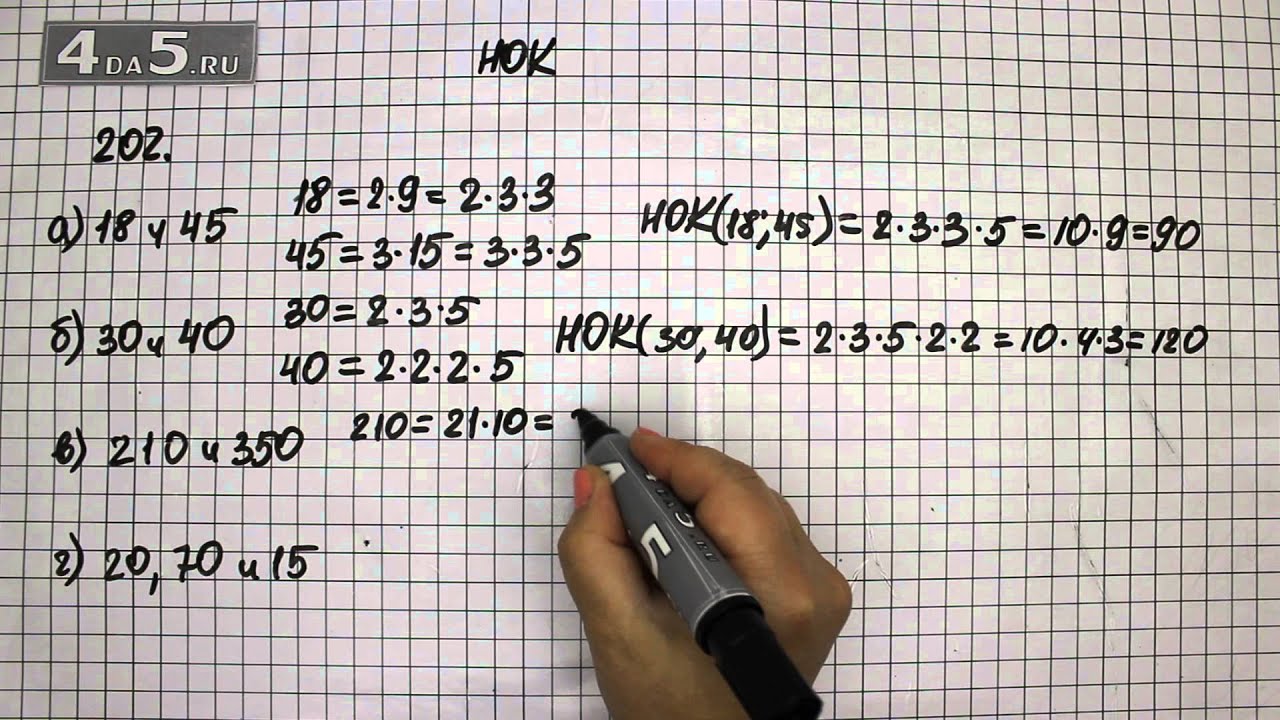 4DA5.RU
НОК
202.
а) 18 и 45
18 = 2·9 = 2·3·3
45 = 3·15 = 3·3·5
НОК(18;45) = 2·3·3·5 = 10·9 = 90
б) 30 и 40
30 = 2·3·5
40 = 2·2·2·5
НОК(30,40) = 2·3·5·2·2 = 10·4·3 = 120
в) 210 и 350
210 = 21·10 =
г) 20, 70 и 15